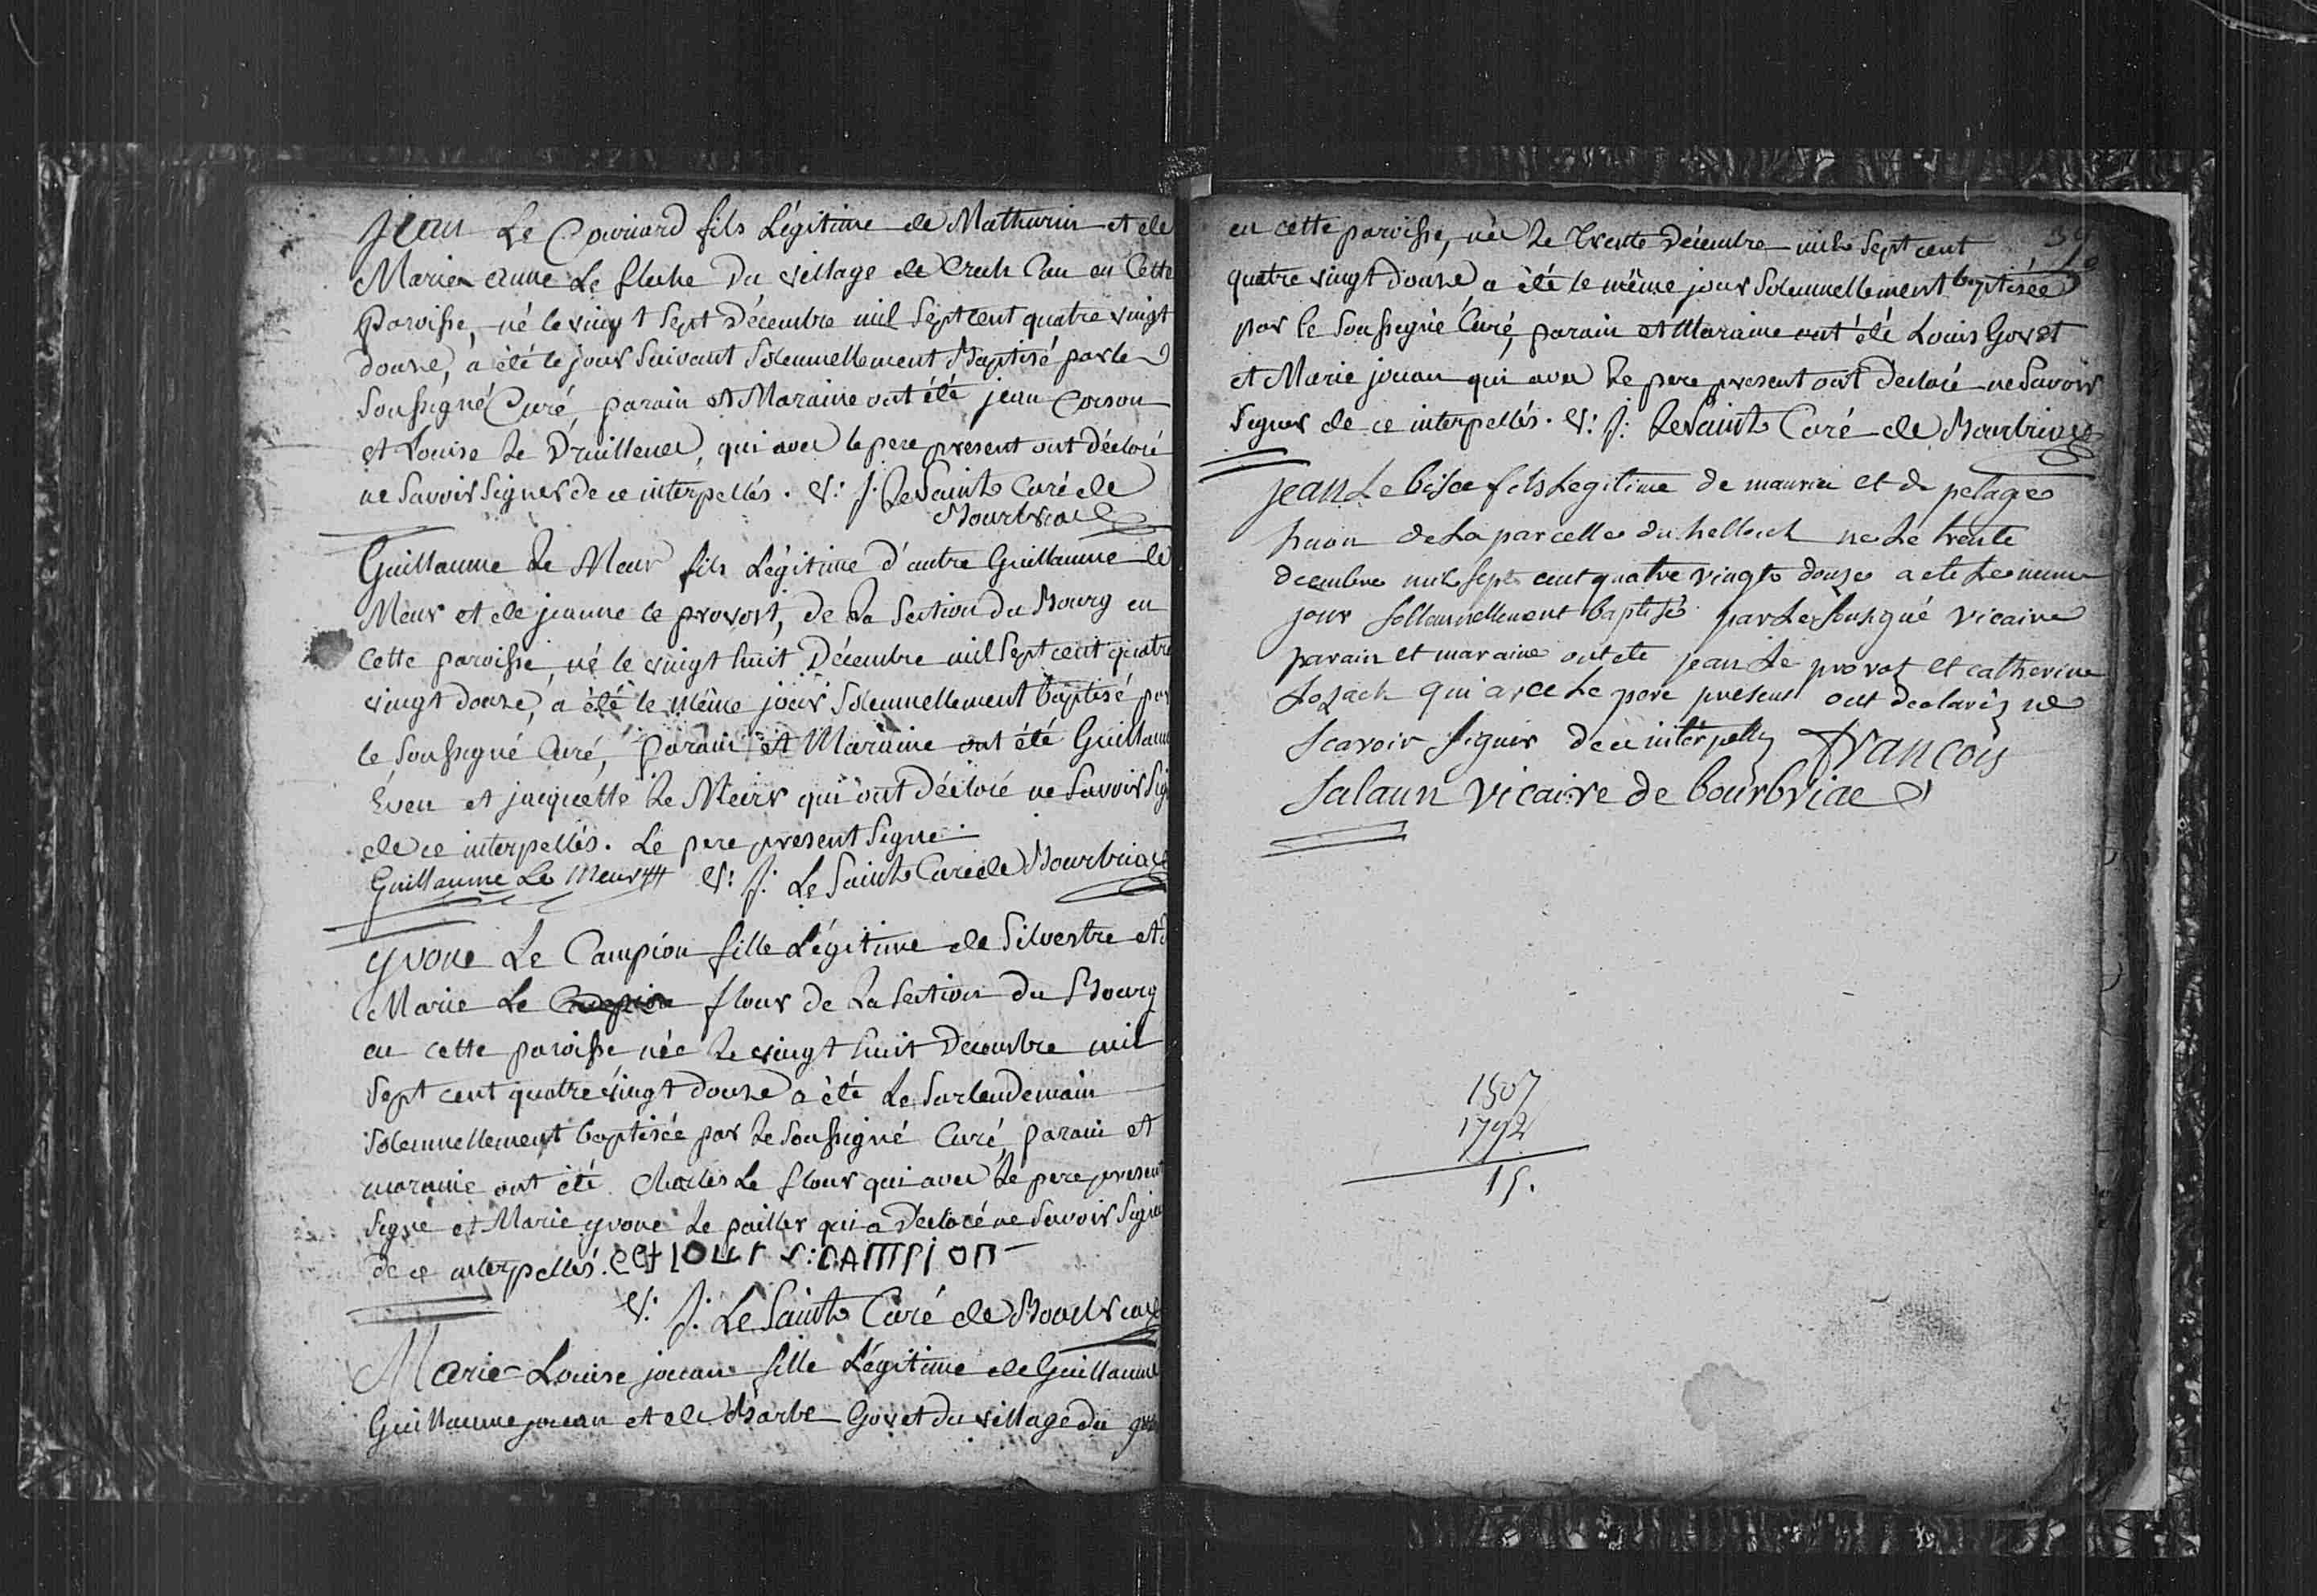 Jean Le Couriard fils Légitime de Mathurin et de
Marie anne Le fleche du village de Crech Can en Cette
Paroisse, né le vingt Sept Décembre mil Sept cent quatre vingt
douze, a été le jour Suivant Solemnellement Baptisé par le
Soussigné Curé, parain et Maraine ont été jean Corson
et Louise Le Druillenec, qui avec le pere present ont Déclaré
ne Savoir Signer de ce interpellés. V: J: Le Saint Curé de
Bourbriac
Guillaume Le Meur fils Légitime d'autre Guillaume le
Meur et de jeanne le provost, de La Section du Bourg en
Cette paroisse, né le vingt huit Décembre mil Sept cent quatre
vingt douze, a été le même jour Solemnellement baptisé par
le Soussigné Curé, parain et Maraine ont été Guillaume
Even et jacquette Le Meur qui ont Déclaré ne Savoir Sig
de ce interpellés. Le pere present Signe.
Guillaume Le Meur V: J: Le Saint Curé de Bourbriac
yvone Le Campion fille Légitime de Silvestre et
Marie Le flour de La Section du Bourg
en cette paroisse née Le vingt huit Décembre mil
Sept cent quatre vingt douze a été Le Surlendemain
Solemnellement baptisée par Le Soussigné Curé, parain et
maraine ont été Charles Le flour qui avec Le pere present
Signe et Marie yvone Le pailler qui a Déclaré ne Savoir Signer
de ce interpellés. C Le flour S: CAMPION
V: J: Le Saint Curé de Bourbriac
Marie Louise jouan fille Légitime de Guillaume
Guillaume jouan et de Barbe Goret du village du
en cette paroisse, née Le Trente Décembre mil Sept cent
quatre vingt douze a été le même jour Solemnellement baptisée
par le Soussigné Curé, parain et Maraine ont été Louis Goret
et Marie jouan qui avec Le pere present ont Déclaré ne Savoir
Signer de ce interpellés. V: J: Le Saint Curé de Bourbriac
jean Le bisec fils Legitime de mauric et de pelage
huon de La parcelle du hellech ne Le trente
decembre mil sept cent quatre vingt douze a ete Le meme
jour sollemnellement baptisé par Le sousigné vicaire
parain et maraine ont ete jean Le provot et catherine
Lozach qui avec Le pere present ont declarés ne
scavoir signer de ce interpellés François
Salaun vicaire de bourbriac
1807
1792
15.